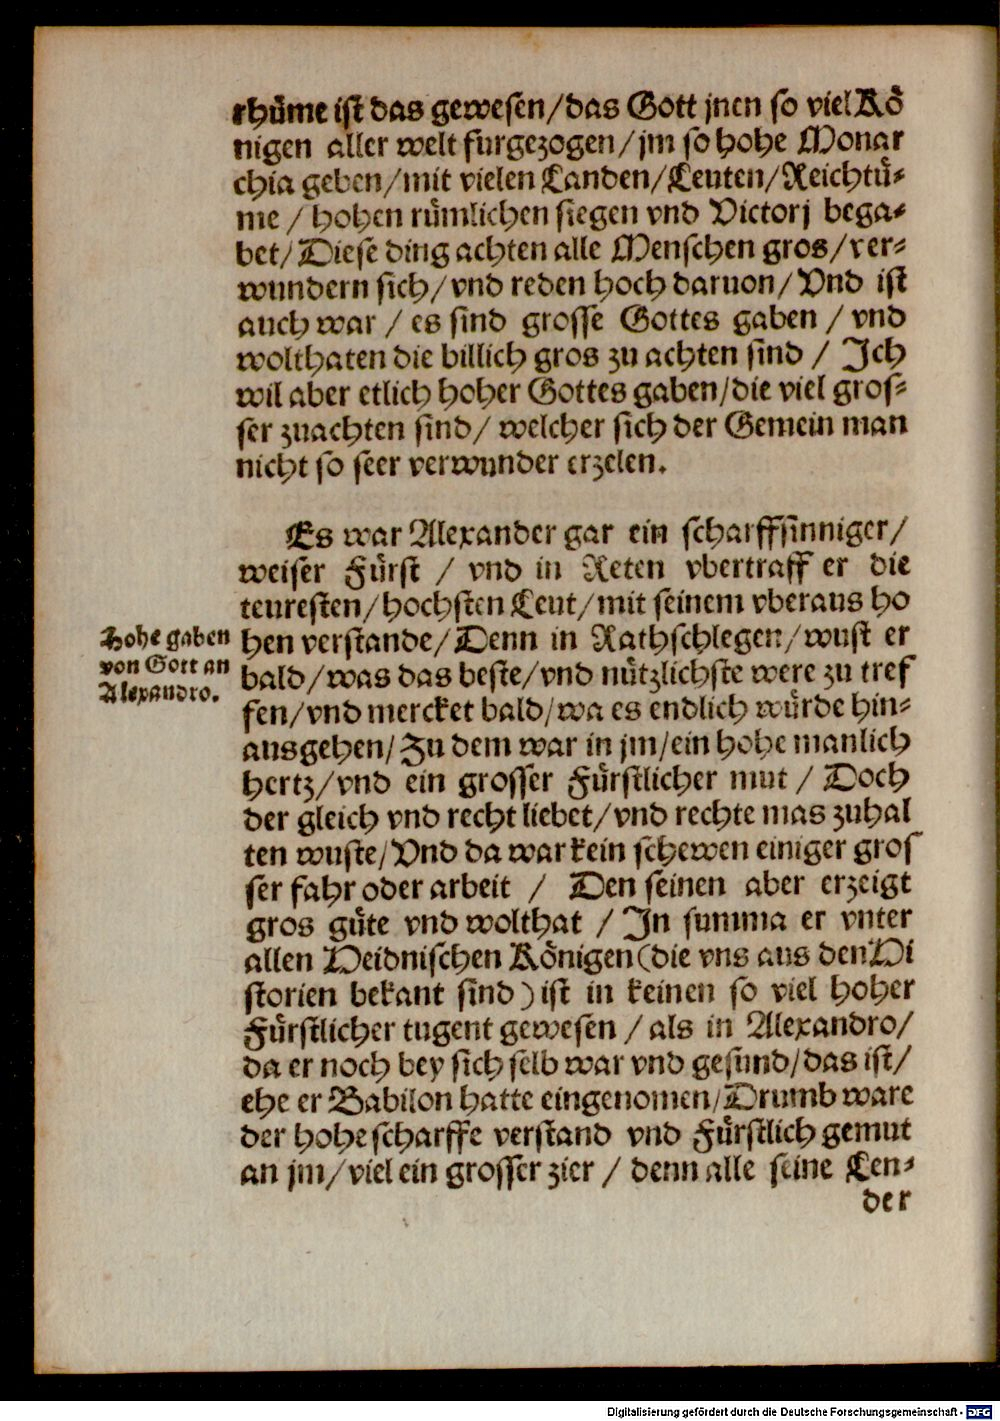 rhüme ist das gewesen/das Gott jnen so viel Kö
nigen aller welt furgezogen/jm so hohe Monar
chia geben/mit vielen Landen/Leuten/Reichtü-
me / hohen rümlichen siegen vnd Victorj bega-
bet/Diese ding achten alle Menschen gros/ver-
wundern sich/vnd reden hoch daruon/Vnd ist
auch war / es sind grosse Gottes gaben / vnd
wolthaten die billich gros zu achten sind / Ich
wil aber etlich hoher Gottes gaben/die viel gros-
ser zuachten sind/ welcher sich der Gemein man
nicht so seer verwunder erzelen.
Es war Alexander gar ein scharffsinniger/
weiser Fürst / vnd in Reten vbertraff er die
teuresten/hochsten Leut/mit seinem vberaus ho
hen verstande/Denn in Rathschlegen/wust er
bald/was das beste/vnd nützlichste were zu tref
fen/vnd mercket bald/wa es endlich würde hin-
ausgehen/Zu dem war in jm/ein hohe manlich
hertz/vnd ein grosser Fürstlicher mut / Doch
der gleich vnd recht liebet/vnd rechte mas zuhal
ten wuste/Vnd da war kein schewen einiger gros
ser fahr oder arbeit / Den seinen aber erzeigt
gros güte vnd wolthat / In summa er vnter
allen Heidnischen Königen(die vns aus den Hi
storien bekant sind) ist in keinen so viel hoher
Fürstlicher tugent gewesen / als in Alexandro/
da er noch bey sich selb war vnd gesund/das ist/
ehe er Babilon hatte eingenomen/Drumb ware
der hohe scharffe verstand vnd Fürstlich gemut
an jm/viel ein grosser zier / denn alle seine Len-
der
Hohe gaben
von Gott an
Alexandro.
Digitalisierung gefördert durch die Deutsche Forschungsgemeinschaft - DFG